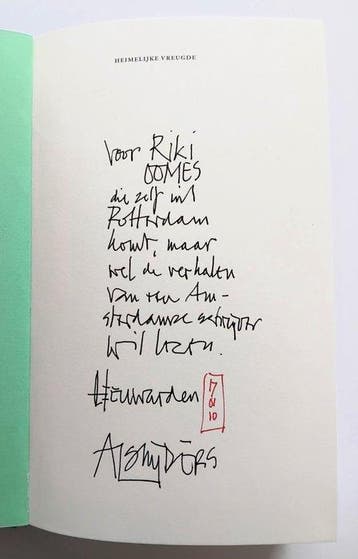 HEIMELIJKE VREUGDE
voor Riki
OOMES
die zelf uit
Rotterdam
komt, maar
wel de verhalen
van een Am-
sterdamse schrijver
wil lezen.
Leeuwarden
17
10
ALSNijDERS